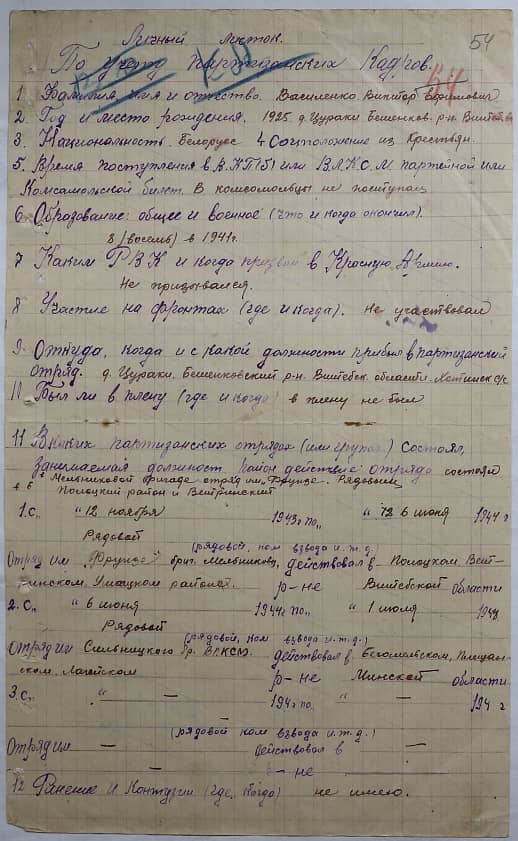 Личный листок. 54
По учету партизанских Кадров.
54
1 Фамилия имя и отчество. Василенко Виктор Ефимович
2 Год и место рождения. 1925 д. Цураки Бешенков. р-н Витебс
3 Национальность. Белорус 4 Соцположение из Крестьян.
5. Время поступления в В.КП(б) или ВЛКС.М партейной или
Комсомольской билет. В комсомольцы не поступал
6 Образование: общее и военное (что и когда окончил).
8 (восемь) в 1941 г.
7 Каким РВК и когда призван в Красную Армию.
Не призывался.
8 Участие на фронтах (где и когда). Не участвовал
9. Откуда, когда и с какой должности прибыл в партизанский
отряд. д. Цураки. Бешенковский р-н. Витебск. области. с/с
11 Был ли в плену (где и когда) в плену не был
11 В каких партизанских отрядах (или групах) состоял,
занимаемая должность район действие отряда состоял
в Мельниковой бригаде отряд им. Фрунзе. Рядовым
Полоцкий район и Ветринский
1. С " 12 ноября 1943 г по " 6 июня 1944 г
Рядовой
(рядовой, ком взвода и.т.д.)
Отряд им Фрунзе бриг. Мельникова, действовал в Полоцком, Вет-
ринском, Ушацком районах. р-не Витебской области
2. С " 6 июня 1944 г по " 1 июля 1944
Рядовой
(рядовой, ком взвода и.т.д.)
Отряд им бр. ВЛКСМ. действовал в Бегомельском, Плещан-
ском, Логойском р-не Минской области
3. С " — 194 г по " — 194 г
—
(рядовой ком взвода и.т.д.)
Отряд им — действовал в —
в — не
12 Ранение и Контузии (где, когда) не имею.